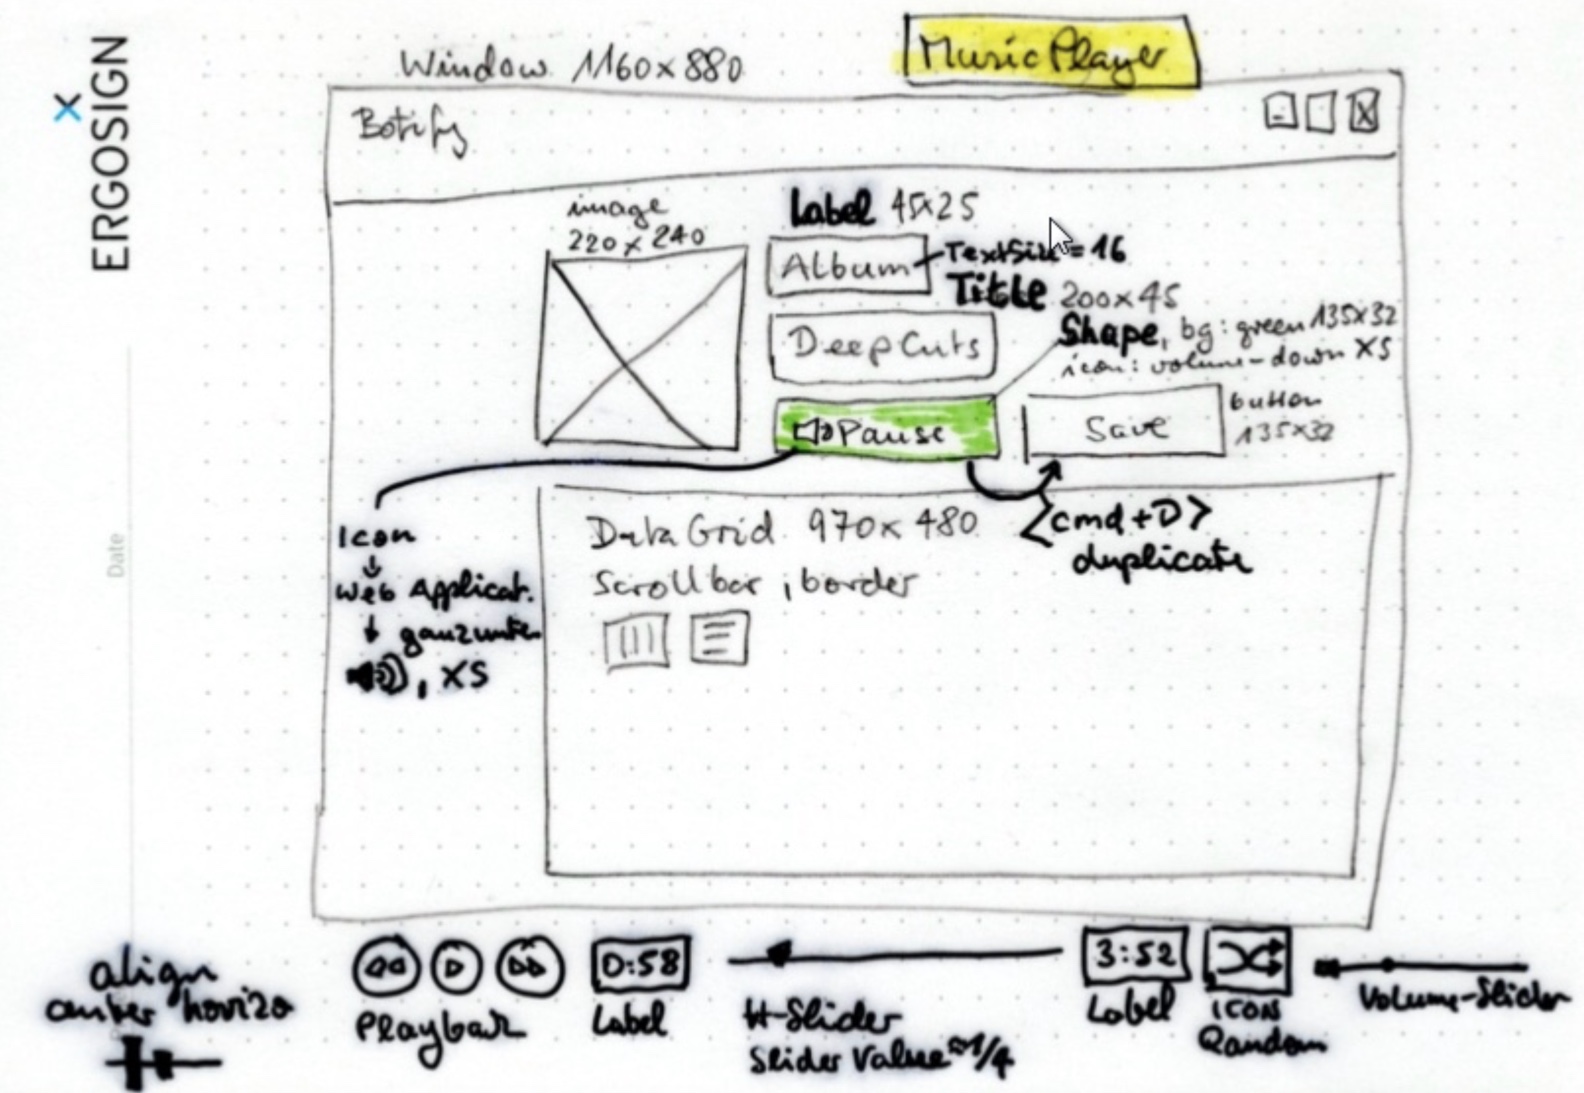 ERGOSIGN
Date
Window 1160x880
MusicPlayer
Botify
image
220 x 240
Label 45x25
Album
TextSize = 16
Title 200x45
DeepCuts
Shape, bg: green 135x32
icon: volume-down XS
Pause
Save
button
135x32
<cmd+D>
duplicate
Icon
Web Applicat.
ganz unten
, XS
DataGrid 970x 480
Scrollbar, border
align
center horizo
Playbar
0:58
Label
H-Slider
Slider Value ≈ 1/4
3:52
Label
icon
Random
Volume-Slider